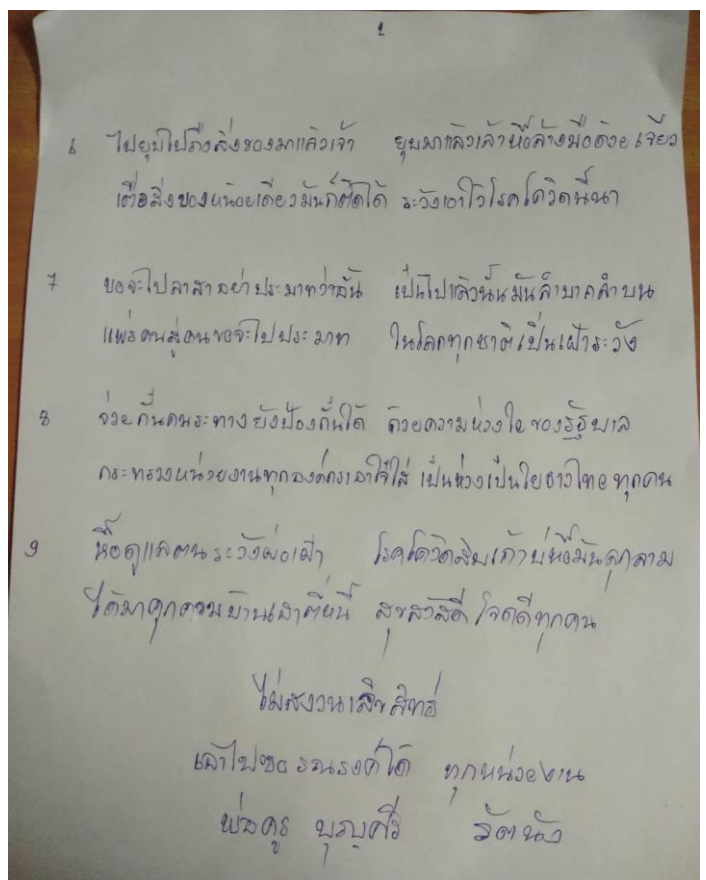 2
6 ไปยุบไปถึงสิ่งของมาแล้วเจ้า ยุบมาแล้วเล้าหื้อล้างมือด้วยเจียว
เตื้อสิ่งของหน้อยเดียวมันก็ติดได้ ระวังเอาไว้โรคโควิดนี้นา
7 ขอจะไปลาสาอย่าประมาทว่าอั้น เป็นไปแล้วนั้นมันลำบากลำบน
แพร่คนสู่คนขอจะไปประมาท ในโลกทุกชาติเปิ่นเฝ้าระวัง
8 จ่วยกั๋นคนระทางยังป้องกั๋นได้ ด้วยความห่วงใยของรัฐบาล
กระทรวงหน่วยงานทุกองค์กรเอาใจ๋ใส่ เป็นห่วงเป็นใยชาวไทยทุกคน
9 หื้อดูแลตนระวังผ่อเฝ้า โรคโควิดสิบเก้าบ่หื้อมันลุกลาม
ได้มาคุกคามบ้านเฮาตี้หนี้ สุขสวัสดี โจคดีทุกคน
ไม่สงวนลิขสิทธ์
เอาไปซอรณรงค์ได้ ทุกหน่วยงาน
พ่อครู บุญศรี รัตนัง